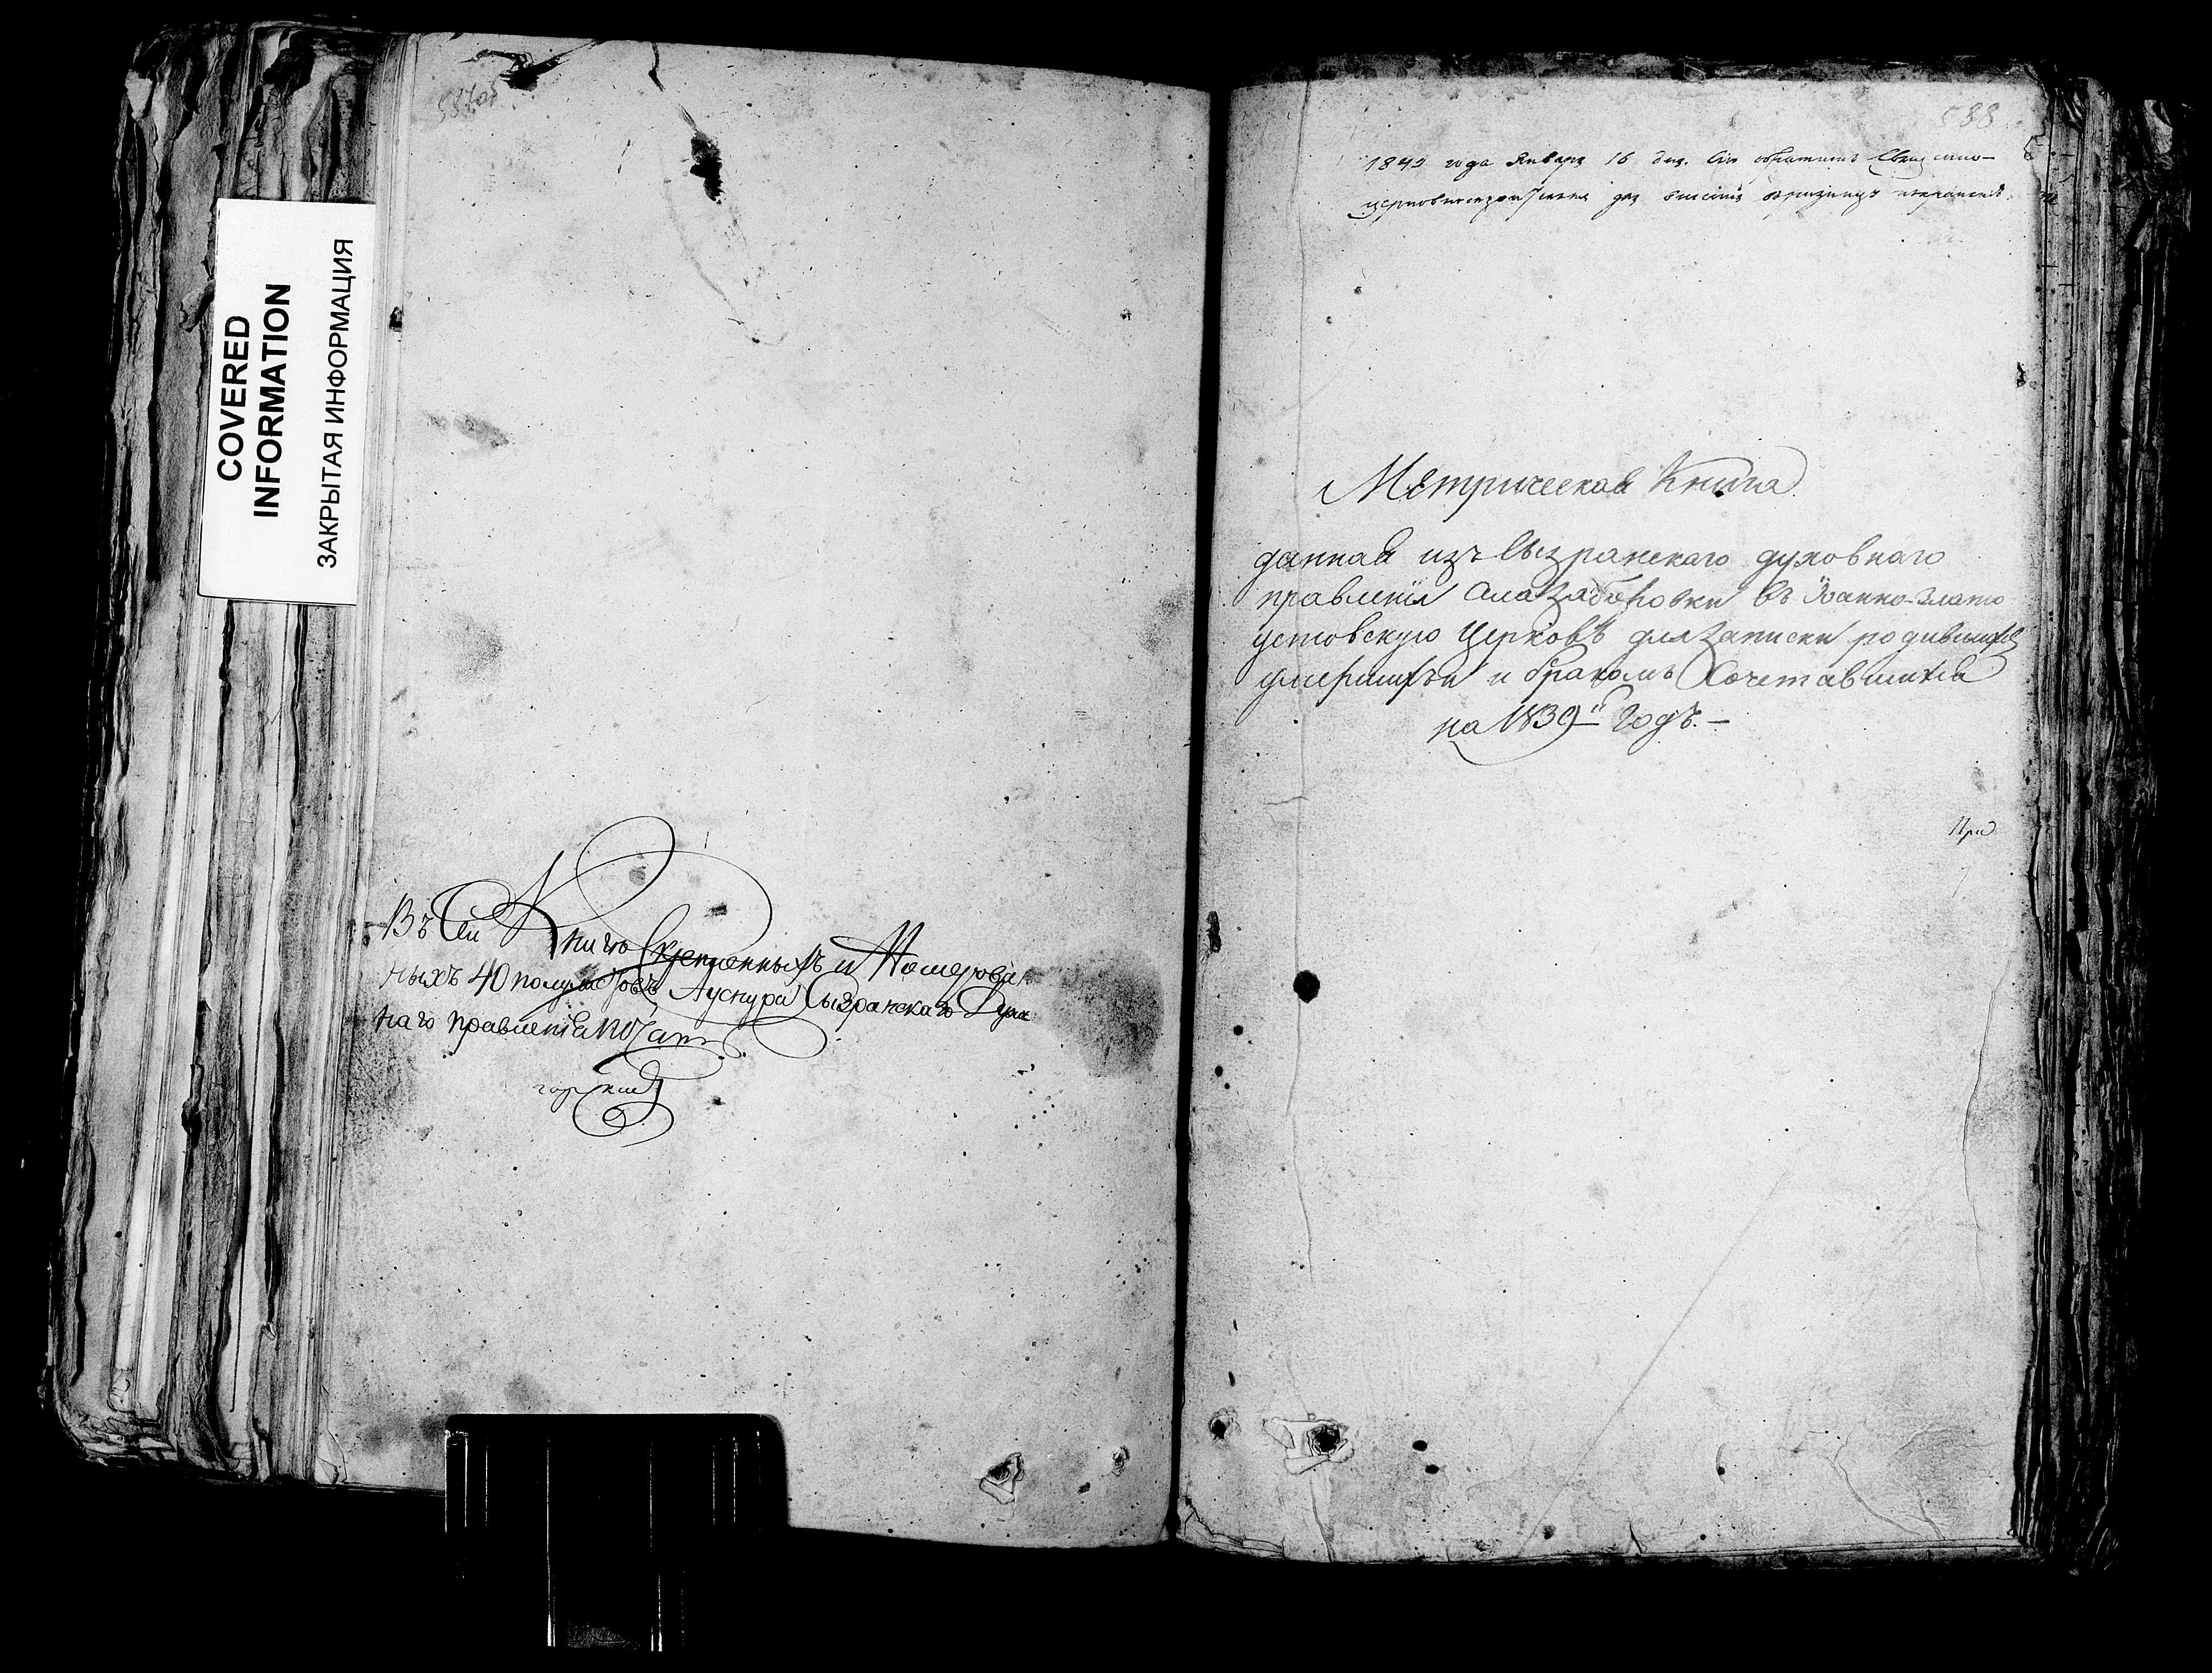 587об
COVERED
INFORMATION
ЗАКРЫТАЯ ИНФОРМАЦИЯ
Въ Сей Книге Скрепленныхъ и Номерован
ныхъ 40 полулистовъ Сызранскаго Духов
наго правления
588
1842 года Января 16 дня. Сiю
для
Метрическая Книга
данная изъ Сызранскаго духовнаго
правленiя Села Заборовки въ Iоанно-Злато
устовскую Церковь для записки родившихся
умершихъ и бракомъ Сочетавшихся
на 1839й Годъ. –
При